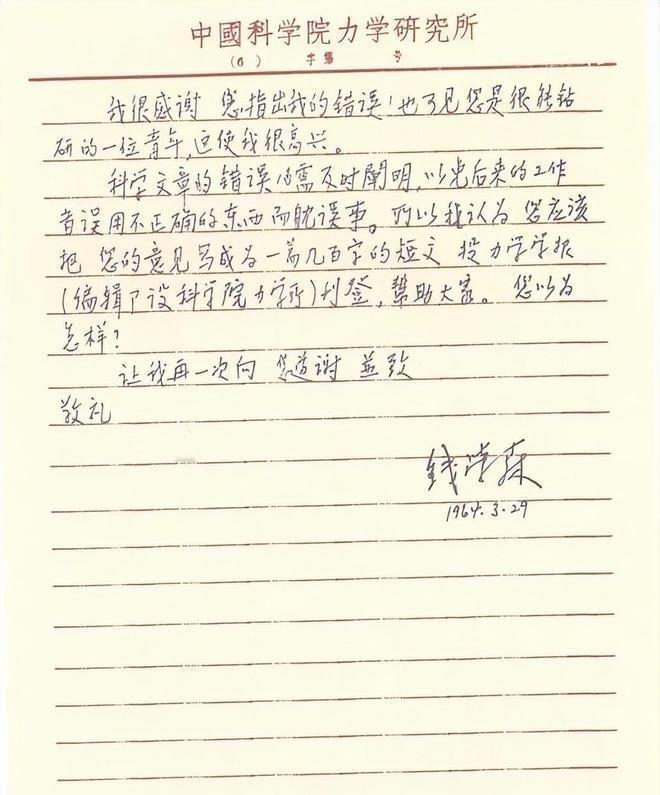 中國科学院力学研究所
(0) 字第 号
我很感谢 您指出我的错误！也可见您是很能钻
研的一位青年，这使我很高兴。
科学文章的错误必需及时阐明，以免后来的工作
者误用不正确的东西而耽误事。所以我认为 您应该
把 您的意见写成为一篇几百字的短文 投力学学报
(编辑部设科学院力学所)刊登，帮助大家。 您以为
怎样？
让我再一次向 您道谢 並致
敬礼
钱学森
1964.3.29